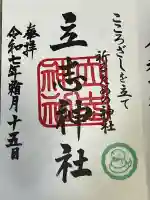 こころざしを立て
祈 神社
立志神社
奉拝
令和七年 月十五日